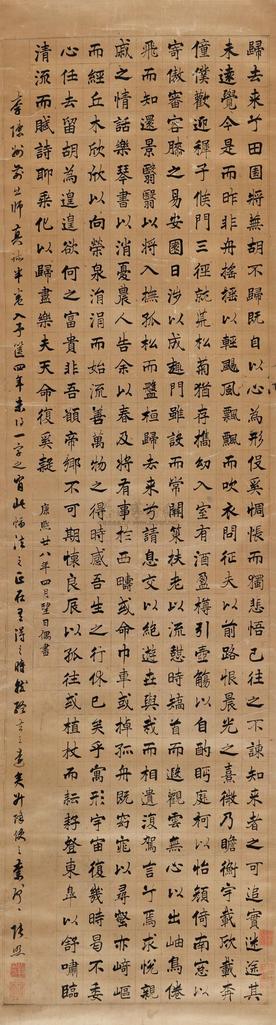 歸去來兮田園將蕪胡不歸既自以心為形役奚惆悵而獨悲悟已往之不諫知來者之可追實迷途其
未遠覺今是而昨非舟搖搖以輕颺風飄飄而吹衣問征夫以前路恨晨光之熹微乃瞻衡宇載欣載奔
僮僕歡迎稺子候門三徑就荒松菊猶存攜幼入室有酒盈樽引壺觴以自酌眄庭柯以怡顏倚南窻以
寄傲審容膝之易安園日涉以成趣門雖設而常關策扶老以流憩時矯首而遐觀雲無心以出岫鳥倦
飛而知還景翳翳以將入撫孤松而盤桓歸去來兮請息交以絕遊世與我而相遺復駕言兮焉求悅親
戚之情話樂琴書以消憂農人告余以春及將有事於西疇或命巾車或棹孤舟既窈窕以尋壑亦崎嶇
而經丘木欣欣以向榮泉涓涓而始流善萬物之得時感吾生之行休已矣乎寓形宇宙復幾時曷不委
心任去留胡為遑遑欲何之富貴非吾願帝鄉不可期懷良辰以孤往或植杖而耘耔登東皋以舒嘯臨
清流而賦詩聊乘化以歸盡樂夫天命復奚疑
康熙廿八年四月望日偶書
入予 四年未 一字之 此幅 之正在